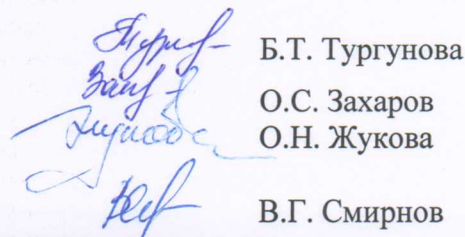 Б.Т. Тургунова
О.С. Захаров
О.Н. Жукова
В.Г. Смирнов